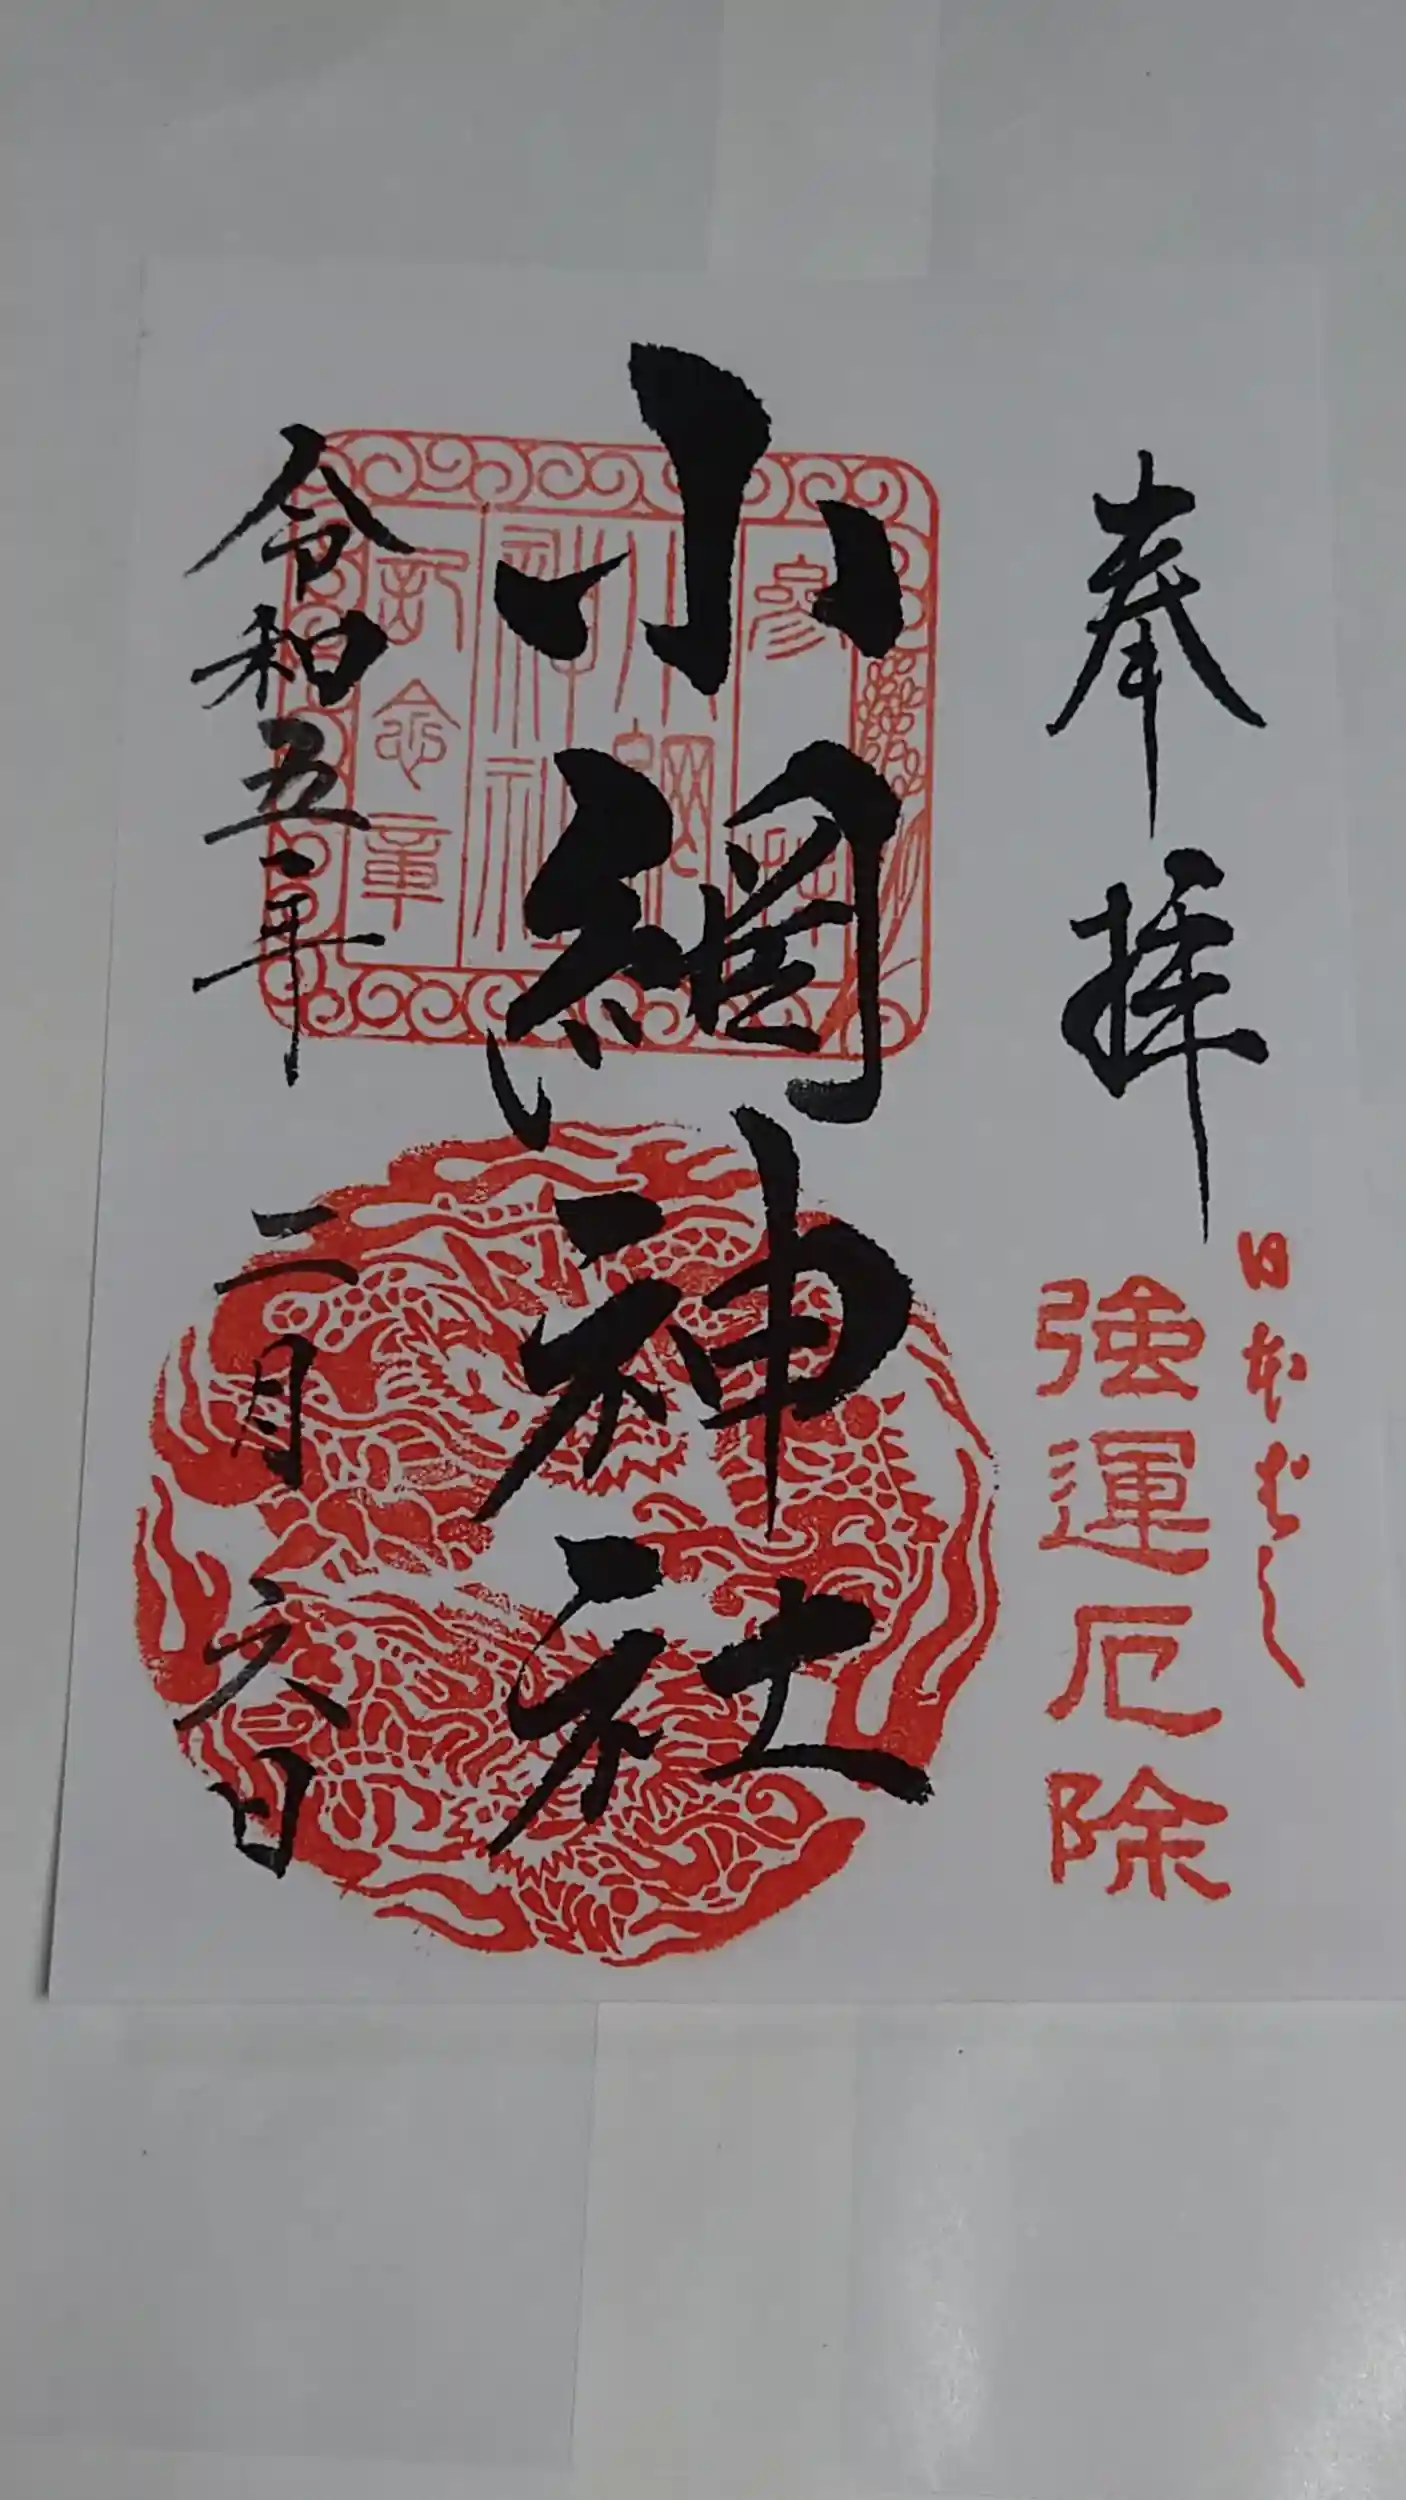 日本ばし
奉拝
強運厄除
小網神社
参拝
小網
神社
記念章
令和五年
二月六日